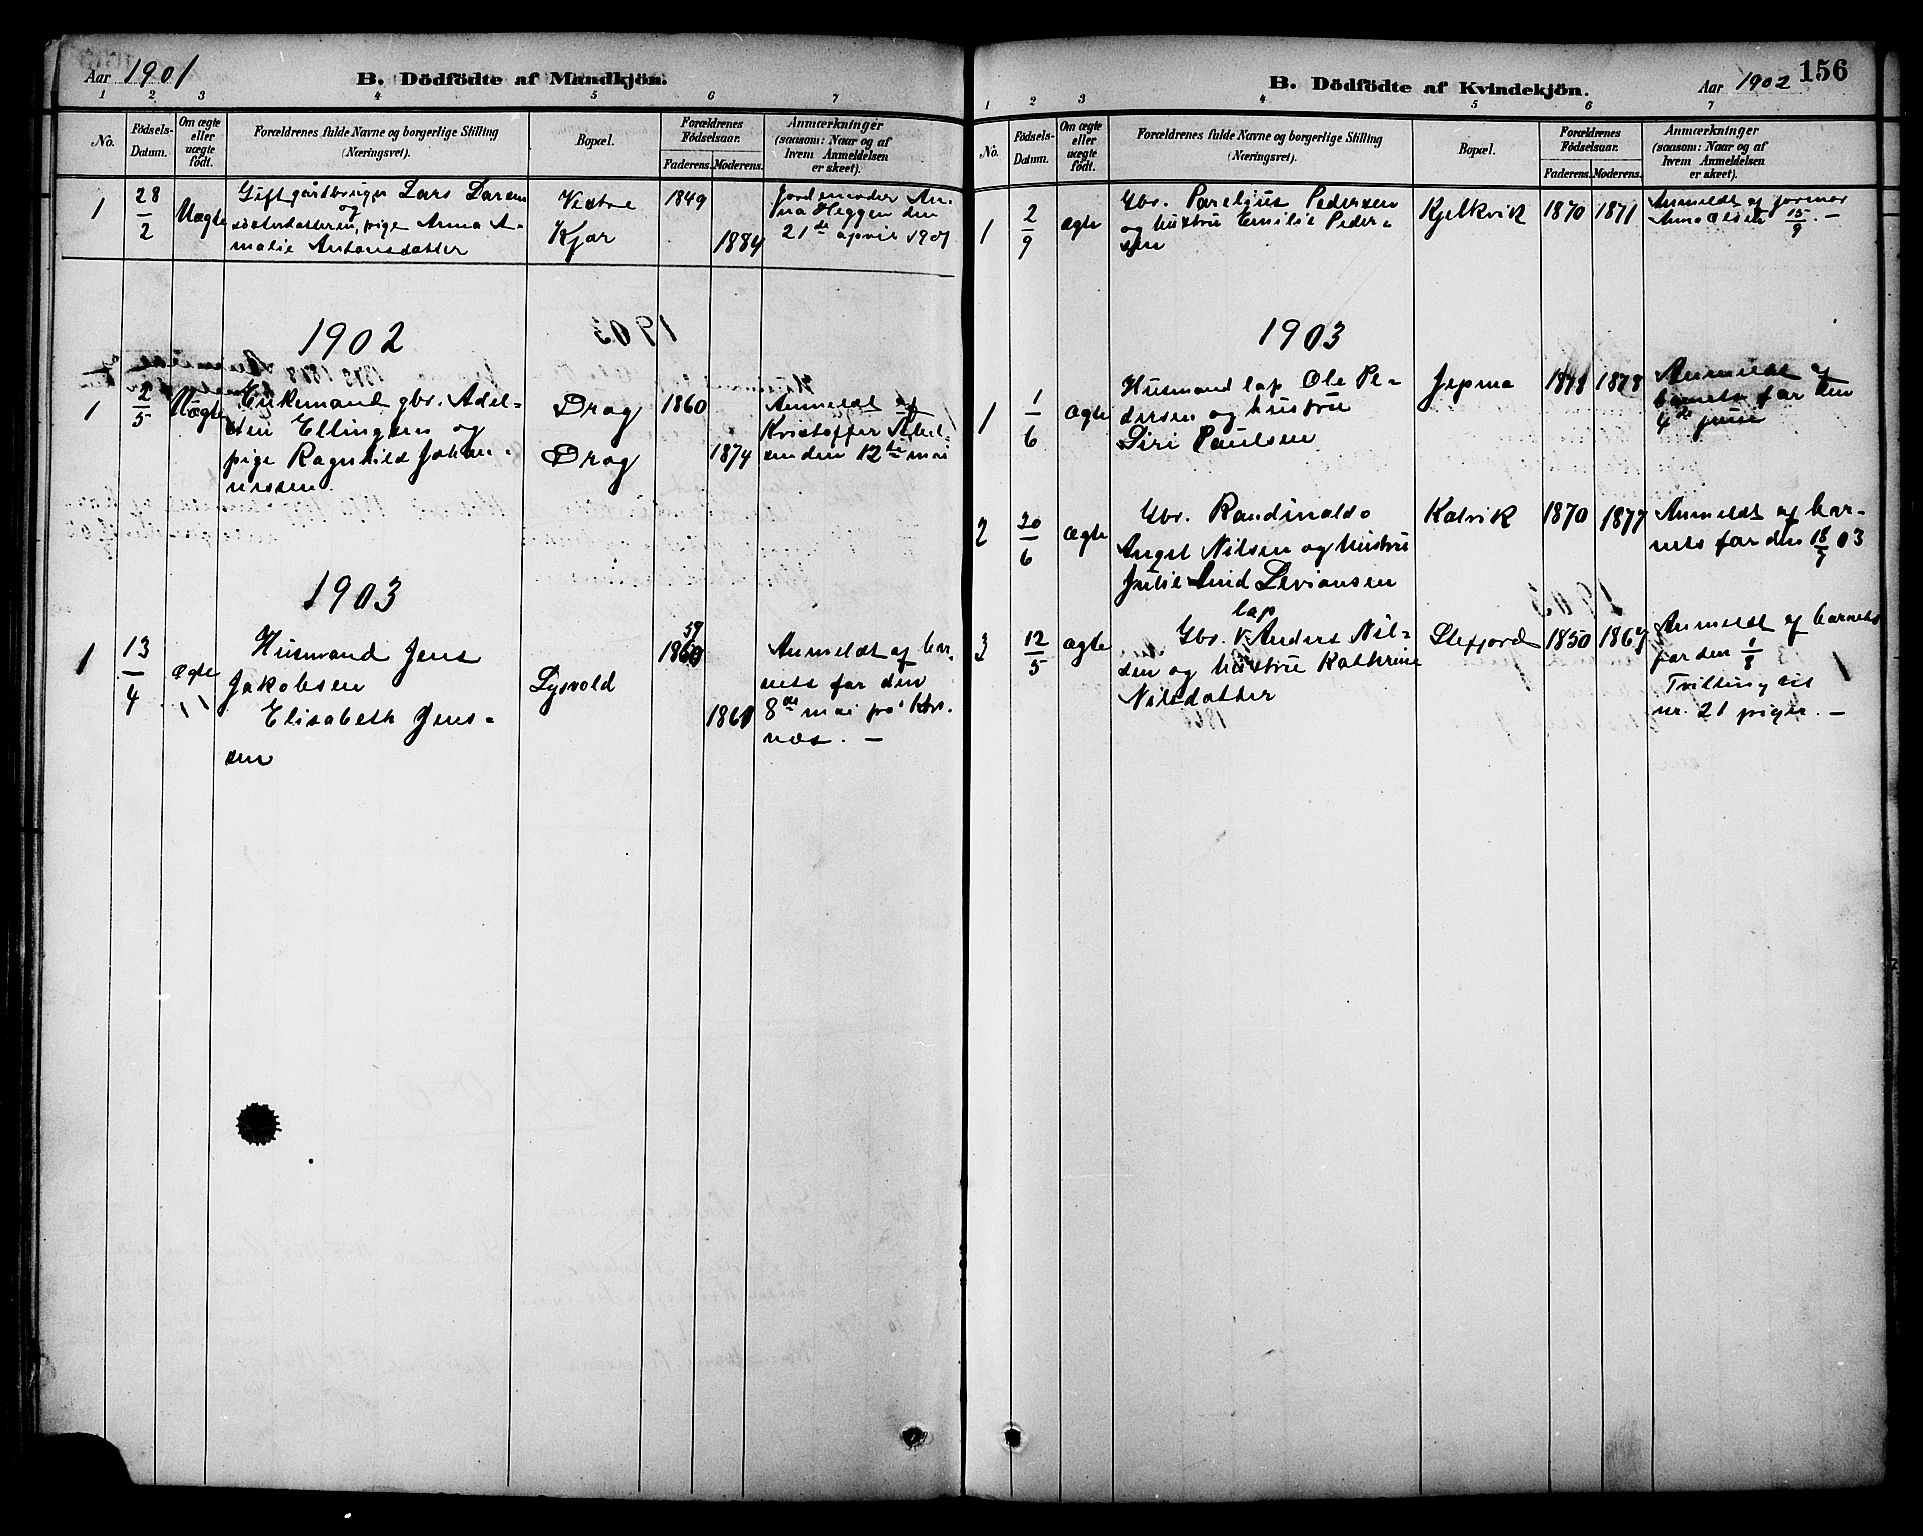 Aar 1901
B. Dödfödte af Mandkjön.
1 2 3 4 5 6 7
No.
Födsels-Datum.
Om ægte eller uægte födt.
Forældrenes fulde Navne og borgerlige Stilling (Næringsvei).
Bopæl.
Forældrenes Födselsaar.
Faderens. Moderens.
Anmærkninger (saasom: Naar og af hvem Anmeldelsen er skeet).
1 28/2 Uægte
Gift gårdbruger Lars Laren
og
søsterdatteren, pige Anna A-
malie Antonsdatter
Vestre
Kjær
1849
1884
Jordemoder An-
na Heggen den
21de april 1901
1902
1 2/5 Uægte
Enkemand gbr. Adil-
sten Ellingsen og
pige Ragnhild Johan-
nessen.
Drag
Drag
1860
1874
Anmeldt af
Kristoffer
den 12te mai
1903
1 13/4 Ægte
Husmand Jens
Jakobsen
Elisabeth Jens-
sen
Lysvold
59
1860
1861
Anmeldt af bar-
nets far den
8de mai på Kors-
næs. —
B. Dödfödte af Kvindekjön.
Aar 1902
156
1 2 3 4 5 6 7
No.
Födsels-Datum.
Om ægte eller uægte födt.
Forældrenes fulde Navne og borgerlige Stilling (Næringsvei).
Bopæl.
Forældrenes Födselsaar.
Faderens. Moderens.
Anmærkninger (saasom: Naar og af hvem Anmeldelsen er skeet).
1 2/9 ægte
Gbr. Pareljus Pedersen
og hustru Emilie Peder-
sen
Kjelkvik
1870 1871
Anmeldt af jormor
Anna Olsen 15/9. —
1903
1 1/6 Ægte
Husmand lap Ole Pe-
dersen og hustru
Siri Paulsen
Jepma
1878 1878
Anmeldt af
barnets far den
4de juni
2 20/6 Ægte
Gbr. Randinaldo
Angel Nilsen og hustru
Julie Lind Levionsen
Kalvik
1870 1877
Anmeldt af bar-
nets far den 18/7 03
3 12/5 ægte
lap
Gbr. Anders Nil-
sen og hustru Kathrine
Nilsdatter
Stefjord
1850 1867
Anmeldt af barnets
far den 1/8
Tvilling til
nr. 21 piger. —